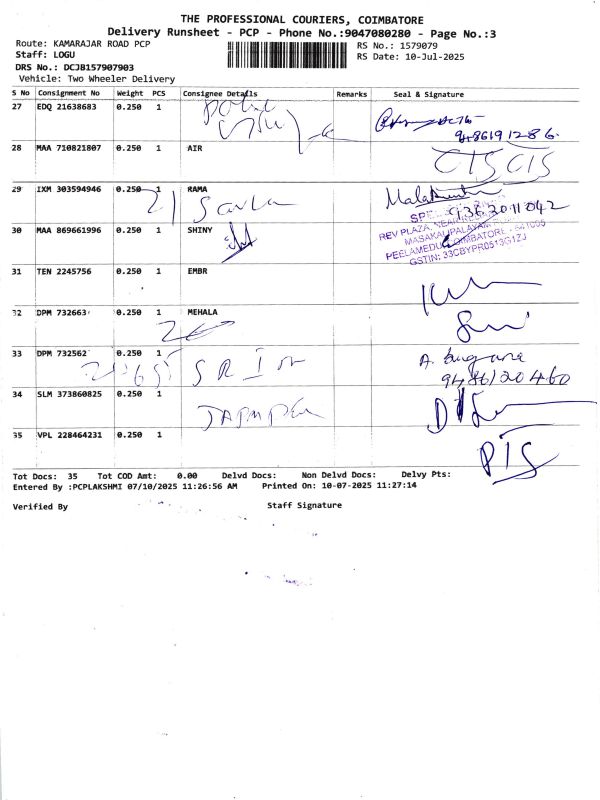 THE PROFESSIONAL COURIERS, COIMBATORE
Delivery Runsheet - PCP - Phone No.:9047080280 - Page No.:3
Route: KAMARAJAR ROAD PCP
Staff: LOGU
DRS No.: DCJ8157907903
Vehicle: Two Wheeler Delivery
RS No.: 1579079
RS Date: 10-Jul-2025
S No Consignment No Weight PCS Consignee Details Remarks Seal & Signature
27 EDQ 21638683 0.250 1
28 MAA 710821807 0.250 1 AIR
CTS CTS
29 IXM 303594946 0.250 1 RAMA
30 MAA 869661996 0.250 1 SHINY
REV PLAZA,
MASAKALIPALAYAM
PEELAMEDU, COIMBATORE
GSTIN: 33CBYPR0513G1ZJ
31 TEN 2245756 0.250 1 EMBR
32 DPM 732663 0.250 1 MEHALA
33 DPM 732562 0.250 1
SRI
9486120460
34 SLM 373860825 0.250 1
35 VPL 228464231 0.250 1
PTS
Tot Docs: 35 Tot COD Amt: 0.00 Delvd Docs: Non Delvd Docs: Delvy Pts:
Entered By :PCPLAKSHMI 07/10/2025 11:26:56 AM Printed On: 10-07-2025 11:27:14
Verified By Staff Signature